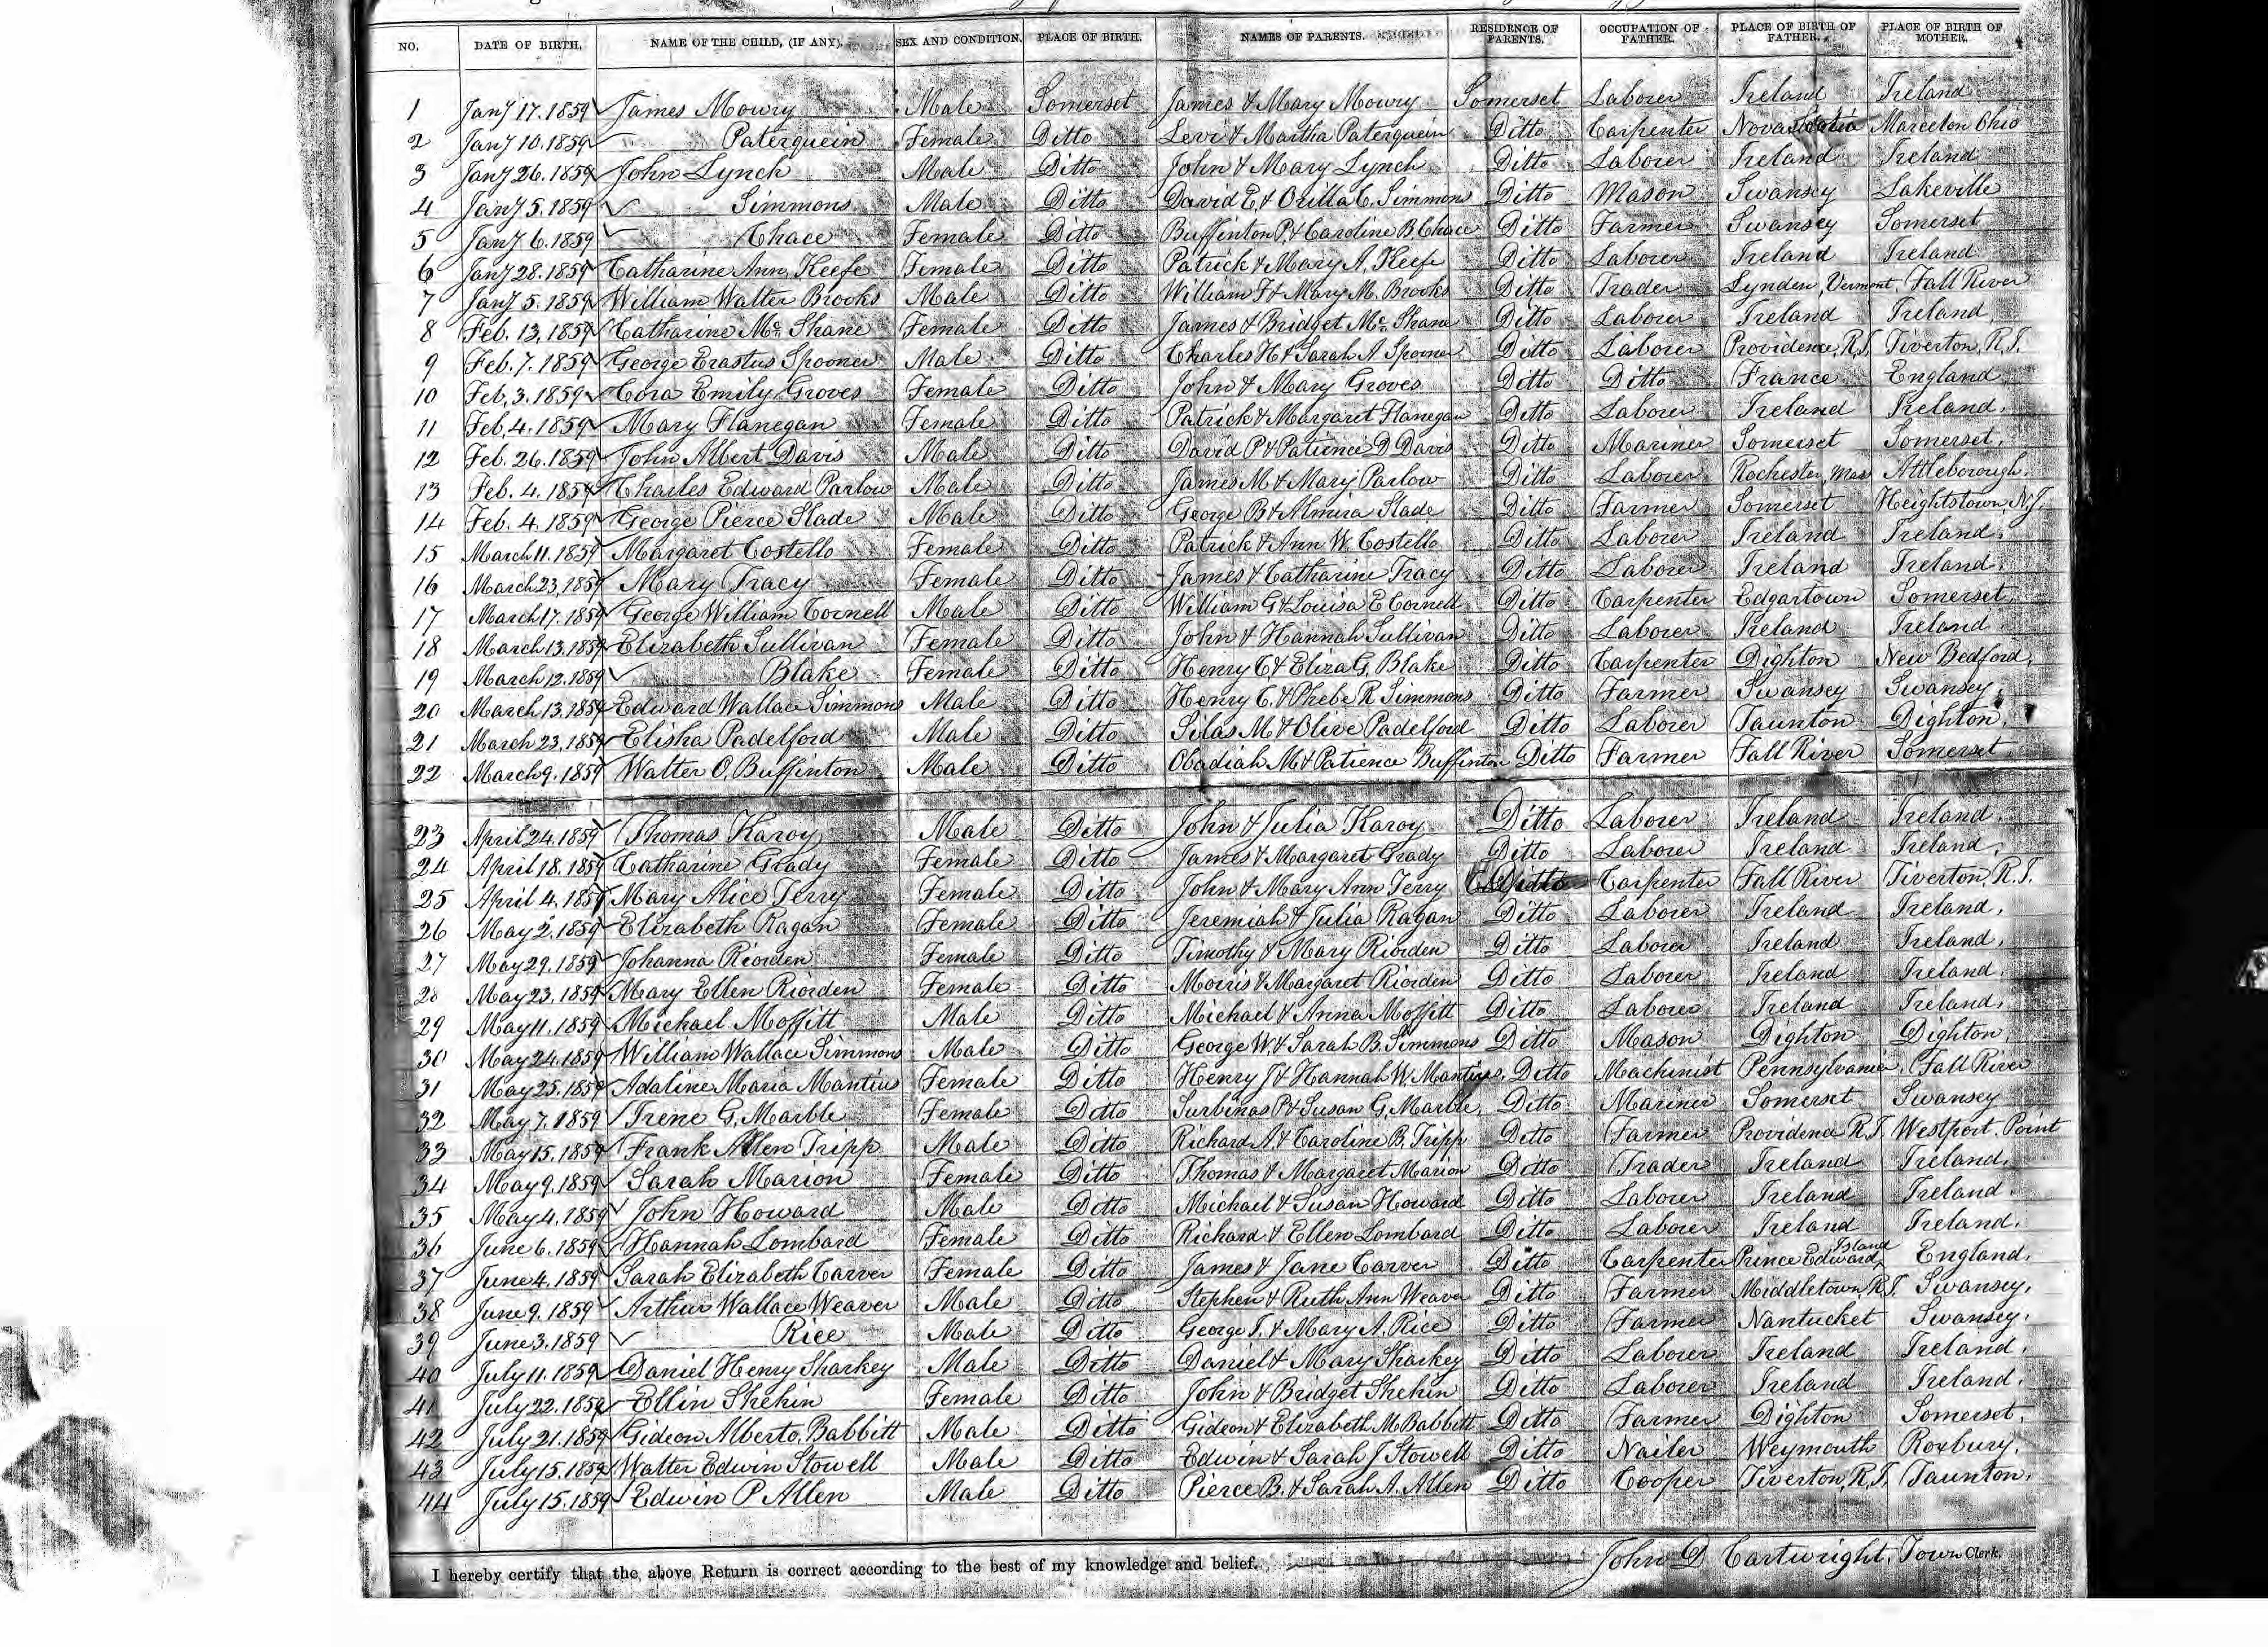 NO. DATE OF BIRTH. NAME OF THE CHILD, (IF ANY). SEX AND CONDITION. PLACE OF BIRTH. NAMES OF PARENTS. RESIDENCE OF PARENTS. OCCUPATION OF FATHER. PLACE OF BIRTH OF FATHER. PLACE OF BIRTH OF MOTHER.
1 Jany 17. 1859 James Mowry Male Somerset James & Mary Mowry Somerset Laborer Ireland Ireland
2 Jany 10. 1859 Paterquein Female Ditto Levi & Martha Paterquein Ditto Carpenter Nova Scotia Marceton Ohio
3 Jany 26. 1859 John Lynch Male Ditto John & Mary Lynch Ditto Laborer Ireland Ireland
4 Jany 5. 1859 Simmons Male Ditto David E. & Orilla C. Simmons Ditto Mason Swansey Lakeville
5 Jany 6. 1859 Chace Female Ditto Buffinton P. & Caroline B. Chace Ditto Farmer Swansey Somerset
6 Jany 28. 1859 Catharine Ann Keefe Female Ditto Patrick & Mary A. Keefe Ditto Laborer Ireland Ireland
7 Jany 5. 1859 William Walter Brooks Male Ditto William F & Mary M. Brooks Ditto Trader Lynden, Vermont Fall River
8 Feb. 13, 1859 Catharine Mc Shane Female Ditto James & Bridget Mc Shane Ditto Laborer Ireland Ireland,
9 Feb. 7. 1859 George Erastus Spooner Male Ditto Charles H & Sarah A Spooner Ditto Laborer Providence, R.I. Tiverton, R.I.
10 Feb, 3. 1859 Cora Emily Groves Female Ditto John & Mary Groves Ditto Ditto France England
11 Feb, 4. 1859 Mary Flanegan Female Ditto Patrick & Margaret Flanegan Ditto Laborer Ireland Ireland.
12 Feb. 26. 1859 John Albert Davis Male Ditto David P & Patience D Davis Ditto Mariner Somerset Somerset,
13 Feb. 4. 1859 Charles Edward Parlow Male Ditto James M & Mary Parlow Ditto Laborer Rochester, Mas Attleborough.
14 Feb. 4. 1859 George Pierce Slade Male Ditto George B & Almira Slade Ditto Farmer Somerset Heightstown, N.J.
15 March 11. 1859 Margaret Costello Female Ditto Patrick & Ann W. Costello Ditto Laborer Ireland Ireland,
16 March 23, 1859 Mary Tracy Female Ditto James & Catharine Tracy Ditto Laborer Ireland Ireland.
17 March 17. 1859 George William Cornell Male Ditto William G & Louisa E Cornell Ditto Carpenter Edgartown Somerset,
18 March 13, 1859 Elizabeth Sullivan Female Ditto John & Hannah Sullivan Ditto Laborer Ireland Ireland.
19 March 12. 1859 Blake Female Ditto Henry C & Eliza G. Blake Ditto Carpenter Dighton New Bedford,
20 March 13, 1859 Edward Wallace Simmons Male Ditto Henry C. & Phebe R Simmons Ditto Farmer Swansey Swansey,
21 March 23, 1859 Elisha Padelford Male Ditto Silas M & Olive Padelford Ditto Laborer Taunton Dighton,
22 March 9. 1859 Walter O. Buffinton Male Ditto Obadiah M & Patience Buffinton Ditto Farmer Fall River Somerset,
23 April 24. 1859 Thomas Karoy Male Ditto John & Julia Karoy Ditto Laborer Ireland Ireland.
24 April 18. 1859 Catharine Grady Female Ditto James & Margaret Grady Ditto Laborer Ireland Ireland,
25 April 4, 1859 Mary Alice Terry Female Ditto John & Mary Ann Terry Ditto Carpenter Fall River Tiverton, R.I.
26 May 2. 1859 Elizabeth Ragan Female Ditto Jeremiah & Julia Ragan Ditto Laborer Ireland Ireland,
27 May 29. 1859 Johanna Riorden Female Ditto Timothy & Mary Riorden Ditto Laborer Ireland Ireland,
28 May 23. 1859 Mary Ellen Riorden Female Ditto Morris & Margaret Riorden Ditto Laborer Ireland Ireland.
29 May 11. 1859 Michael Moffitt Male Ditto Michael & Anna Moffitt Ditto Laborer Ireland Ireland,
30 May 24. 1859 William Wallace Simmons Male Ditto George W. & Sarah B. Simmons Ditto Mason Dighton Dighton,
31 May 25. 1859 Adaline Maria Mantius Female Ditto Henry J & Hannah W. Mantius, Ditto Machinist Pennsylvania, Fall River
32 May 7. 1859 Irene G. Marble Female Ditto Surbinas P & Susan G. Marble, Ditto Mariner Somerset Swansey
33 May 15. 1859 Frank Allen Tripp Male Ditto Richard A. & Caroline B. Tripp Ditto Farmer Providence R.I. Westport. Point
34 May 9. 1859 Sarah Marion Female Ditto Thomas & Margaret Marion Ditto Trader Ireland Ireland.
35 May 4. 1859 John Howard Male Ditto Michael & Susan Howard Ditto Laborer Ireland Ireland.
36 June 6. 1859 Hannah Lombard Female Ditto Richard & Ellen Lombard Ditto Laborer Ireland Ireland.
37 June 4. 1859 Sarah Elizabeth Carver Female Ditto James & Jane Carver Ditto Carpenter Prince Edward Island England.
38 June 9. 1859 Arthur Wallace Weaver Male Ditto Stephen & Ruth Ann Weaver Ditto Farmer Middletown R.I. Swansey,
39 June 3. 1859 Rice Male Ditto George T. & Mary A. Rice Ditto Farmer Nantucket Swansey.
40 July 11. 1859 Daniel Henry Sharkey Male Ditto Daniel & Mary Sharkey Ditto Laborer Ireland Ireland.
41 July 22. 1859 Ellin Shehin Female Ditto John & Bridget Shehin Ditto Laborer Ireland Ireland.
42 July 21. 1859 Gideon Alberto, Babbitt Male Ditto Gideon & Elizabeth M Babbitt Ditto Farmer Dighton Somerset,
43 July 15. 1859 Walter Edwin Stowell Male Ditto Edwin & Sarah J Stowell Ditto Nailer Weymouth Roxbury.
44 July 15. 1859 Edwin P Allen Male Ditto Pierce B. & Sarah A. Allen Ditto Cooper Tiverton, R.I. Taunton.
I hereby certify that the above Return is correct according to the best of my knowledge and belief. John D Cartwright, Town Clerk.